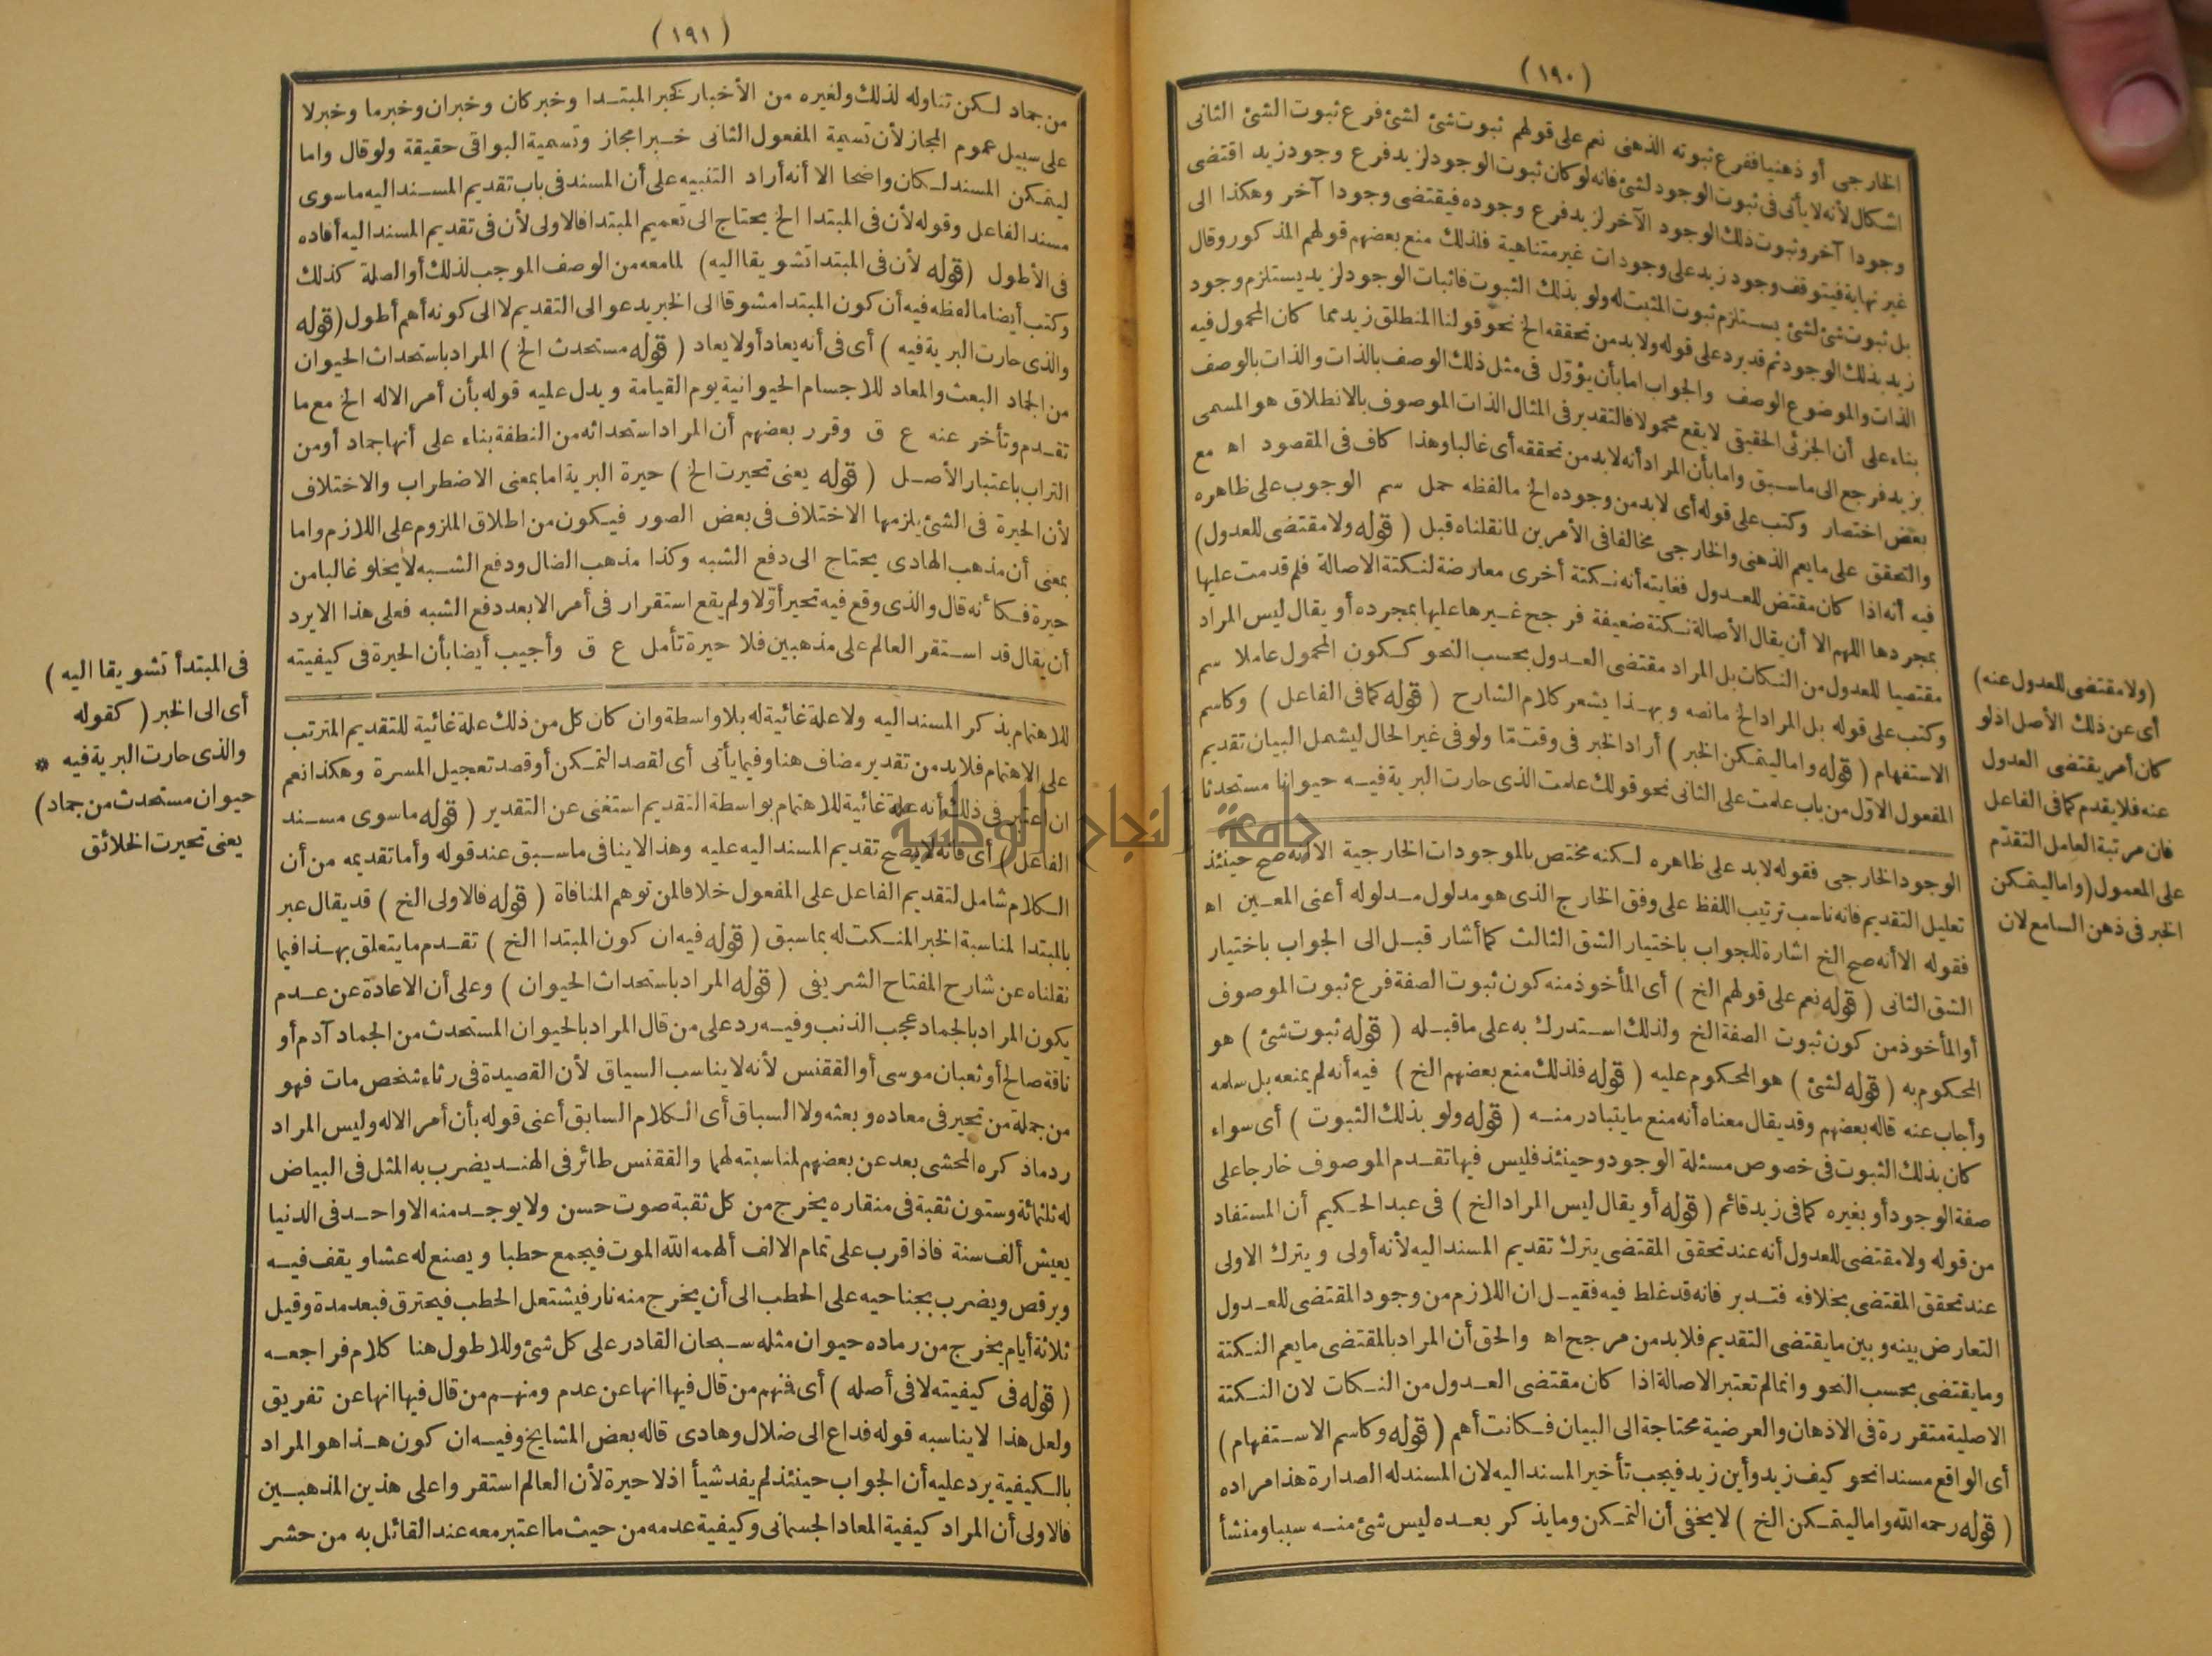 (١٩٠)
الخارجى أو ذهنيا ففرع ثبوته الذهنى نعم على قولهم ثبوت شئ لشئ فرع ثبوت الشئ الثانى
اشكال لأنه لا يأتى فى ثبوت الوجود لشئ فانه لو كان ثبوت الوجود لزيد فرع وجود زيد اقتضى
وجودا آخر وثبوت ذلك الوجود الآخر لزيد فرع وجوده فيقتضى وجودا آخر وهكذا الى
غير نهاية فيتوقف وجود زيد على وجودات غير متناهية فلذلك منع بعضهم قولهم المذكور وقال
بل ثبوت شئ لشئ يستلزم ثبوت المثبت له ولو بذلك الثبوت فاثبات الوجود لزيد يستلزم وجود
زيد بذلك الوجود ثم قد يرد على قوله ولا بد من تحققه الخ نحو قولنا المنطلق زيد مما كان المحمول فيه
الذات والموضوع الوصف والجواب اما بأن يؤوّل فى مثل ذلك الوصف بالذات والذات بالوصف
بناء على أن الجزئى الحقيقى لا يقع محمولا فالتقدير فى المثال الذات الموصوف بالانطلاق هو المسمى
بزيد فرجع الى ما سبق واما بأن المراد أنه لا بد من تحققه أى غالبا وهذا كاف فى المقصود اه مع
بعض اختصار وكتب على قوله أى لا بد من وجوده الخ ما لفظه حمل سم الوجوب على ظاهره
والتحقق على ما يعم الذهنى والخارجى مخالفا فى الأمرين لما نقلناه قبل (قوله ولا مقتضى للعدول)
فيه أنه اذا كان مقتض للعدول فغايته أنه نكتة أخرى معارضة لنكتة الاصالة فلم قدمت عليها
بمجردها اللهم الا أن يقال الأصالة نكتة ضعيفة فرجح غيرها عليها بمجرده أو يقال ليس المراد
مقتضيا للعدول من النكات بل المراد مقتضى العدول بحسب النحو ككون المحمول عاملا سم
وكتب على قوله بل المراد الخ ما نصه وبهذا يشعر كلام الشارح (قوله كما فى الفاعل) وكاسم
الاستفهام (قوله واما ليتمكن الخبر) أراد الخبر فى وقت مّا ولو فى غير الحال ليشمل البيان تقديم
المفعول الاوّل من باب علمت على الثانى نحو قولك علمت الذى حارت البرية فيه حيوانا مستحدثا
الوجود الخارجى فقوله لا بد على ظاهره لكنه مختص بالموجودات الخارجية الا أنه صح حينئذ
تعليل التقديم فانه ناسب ترتيب اللفظ على وفق الخارج الذى هو مدلول مدلوله أعنى المعين اه
فقوله الا أنه صح الخ اشارة للجواب باختيار الشق الثالث كما أشار قبل الى الجواب باختيار
الشق الثانى (قوله نعم على قولهم الخ) أى المأخوذ منه كون ثبوت الصفة فرع ثبوت الموصوف
أو المأخوذ من كون ثبوت الصفة الخ ولذلك استدرك به على ما قبله (قوله ثبوت شئ) هو
المحكوم به (قوله لشئ) هو المحكوم عليه (قوله فلذلك منع بعضهم الخ) فيه أنه لم يمنعه بل سلمه
وأجاب عنه قاله بعضهم وقد يقال معناه أنه منع ما يتبادر منه (قوله ولو بذلك الثبوت) أى سواء
كان بذلك الثبوت فى خصوص مسئلة الوجود وحينئذ فليس فيها تقدم الموصوف خارجا على
صفة الوجود أو بغيره كما فى زيد قائم (قوله أو يقال ليس المراد الخ) فى عبد الحكيم أن المستفاد
من قوله ولا مقتضى للعدول أنه عند تحقق المقتضى يترك تقديم المسند اليه لأنه أولى ويترك الاولى
عند تحقق المقتضى بخلافه فتدبر فانه قد غلط فيه فقيل ان اللازم من وجود المقتضى للعدول
التعارض بينه وبين ما يقتضى التقديم فلا بد من مرجح اه والحق أن المراد بالمقتضى ما يعم النكتة
وما يقتضى بحسب النحو وانما لم تعتبر الاصالة اذا كان مقتضى العدول من النكات لان النكتة
الاصلية متقررة فى الاذهان والعرضية محتاجة الى البيان فكانت أهم (قوله وكاسم الاستفهام)
أى الواقع مسندا نحو كيف زيد وأين زيد فيجب تأخير المسند اليه لان المسند له الصدارة هذا مراده
(قوله رحمه الله واما ليتمكن الخ) لا يخفى أن التمكن وما يذكر بعده ليس شئ منه سببا ومنشأ
(ولا مقتضى للعدول عنه)
أى عن ذلك الأصل اذ لو
كان أمر يقتضى العدول
عنه فلا يقدم كما فى الفاعل
فان مرتبة العامل التقدّم
على المعمول (واما ليتمكن
الخبر فى ذهن السامع لان
(١٩١)
من جماد لكن تناوله لذلك ولغيره من الأخبار كخبر المبتدا وخبر كان وخبر ان وخبر ما وخبر لا
على سبيل عموم المجاز لأن تسمية المفعول الثانى خبرا مجاز وتسمية البواقى حقيقة ولو قال واما
ليتمكن المسند لكان واضحا الا أنه أراد التنبيه على أن المسند فى باب تقديم المسند اليه ما سوى
مسند الفاعل وقوله لأن فى المبتدا الخ يحتاج الى تعميم المبتدا فالاولى لأن فى تقديم المسند اليه أفاده
فى الأطول (قوله لأن فى المبتدا تشويقا اليه) لما معه من الوصف الموجب لذلك أو الصلة كذلك
وكتب أيضا ما لفظه فيه أن كون المبتدا مشوقا الى الخبر يدعو الى التقديم لا الى كونه أهم أطول (قوله
والذى حارت البرية فيه) أى فى أنه يعاد أو لا يعاد (قوله مستحدث الخ) المراد باستحداث الحيوان
من الجماد البعث والمعاد للاجسام الحيوانية يوم القيامة ويدل عليه قوله بأن أمر الاله الخ مع ما
تقدم وتأخر عنه ع ق وقرر بعضهم أن المراد استحداثه من النطفة بناء على أنها جماد أو من
التراب باعتبار الأصل (قوله يعنى تحيرت الخ) حيرة البرية اما بمعنى الاضطراب والاختلاف
لأن الحيرة فى الشئ يلزمها الاختلاف فى بعض الصور فيكون من اطلاق الملزوم على اللازم واما
بمعنى أن مذهب الهادى يحتاج الى دفع الشبه وكذا مذهب الضال ودفع الشبه لا يخلو غالبا من
حيرة فكأنه قال والذى وقع فيه تحير أوّلا ولم يقع استقرار فى أمر الا بعد دفع الشبه فعلى هذا لا يرد
أن يقال قد استقر العالم على مذهبين فلا حيرة تأمل ع ق وأجيب أيضا بأن الحيرة فى كيفيته
للاهتمام بذكر المسند اليه ولا علة غائية له بلا واسطة وان كان كل من ذلك علة غائية للتقديم المترتب
على الاهتمام فلا بد من تقدير مضاف هنا وفيما يأتى أى لقصد التمكن أو قصد تعجيل المسرة وهكذا نعم
ان اعتبر فى ذلك أنه علة غائية للاهتمام بواسطة التقديم استغنى عن التقدير (قوله ما سوى مسند
الفاعل) أى فانه لا يصح تقديم المسند اليه عليه وهذا لا ينافى ما سبق عند قوله وأما تقديمه من أن
الكلام شامل لتقديم الفاعل على المفعول خلافا لمن توهم المنافاة (قوله فالاولى الخ) قد يقال عبر
بالمبتدا لمناسبة الخبر المنكت له بما سبق (قوله فيه ان كون المبتدا الخ) تقدم ما يتعلق بهذا فيما
نقلناه عن شارح المفتاح الشريفى (قوله المراد باستحداث الحيوان) وعلى أن الاعادة عن عدم
يكون المراد بالجماد عجب الذنب وفيه رد على من قال المراد بالحيوان المستحدث من الجماد آدم أو
ناقة صالح أو ثعبان موسى أو الققنس لأنه لا يناسب السياق لأن القصيدة فى رثاء شخص مات فهو
من جملة من تحير فى معاده وبعثه ولا السباق أى الكلام السابق أعنى قوله بأن أمر الاله وليس المراد
رد ما ذكره المحشى بعد عن بعضهم لمناسبته لهما والققنس طائر فى الهند يضرب به المثل فى البياض
له ثلثمائة وستون ثقبة فى منقاره يخرج من كل ثقبة صوت حسن ولا يوجد منه الا واحد فى الدنيا
يعيش ألف سنة فاذا قرب على تمام الالف ألهمه الله الموت فيجمع حطبا ويصنع له عشا ويقف فيه
ويرقص ويضرب بجناحيه على الحطب الى أن يخرج منه نار فيشتعل الحطب فيحترق فبعد مدة وقيل
ثلاثة أيام يخرج من رماده حيوان مثله سبحان القادر على كل شئ وللاطول هنا كلام فراجعه
(قوله فى كيفيته لا فى أصله) أى فمنهم من قال فيها انها عن عدم ومنهم من قال فيها انها عن تفريق
ولعل هذا لا يناسبه قوله فداع الى ضلال وهادى قاله بعض المشايخ وفيه ان كون هذا هو المراد
بالكيفية يرد عليه أن الجواب حينئذ لم يفد شيأ اذ لا حيرة لأن العالم استقروا على هذين المذهبين
فالاولى أن المراد كيفية المعاد الجسمانى وكيفية عدمه من حيث ما اعتبر معه عند القائل به من حشر
فى المبتدأ تشويقا اليه)
أى الى الخبر (كقوله
والذى حارت البرية فيه *
حيوان مستحدث من جماد)
يعنى تحيرت الخلائق
جامعة النجاح الوطنية